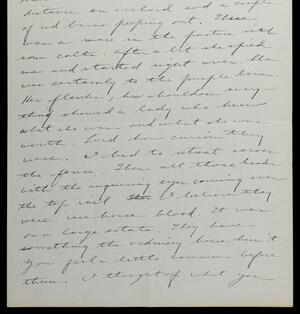 distance an orchard and a couple
of red barns peeping out. There
was a mare in the pasture with
some colts. After a bit she spied
me and started right over. She
was certainly to the purple born.
Her flanks, her shoulders every
thing showed a lady who knew
what she was and what she was
worth. Lord how curious they
were. I had to retreat across
the fence. Then all those heads
with the inquiring eyes coming over
the top rail. I believe they
were race horse blood. It was
on a large estate. They have
something the ordinary horse hasn't.
You feel a little common before
them. I thought of what you